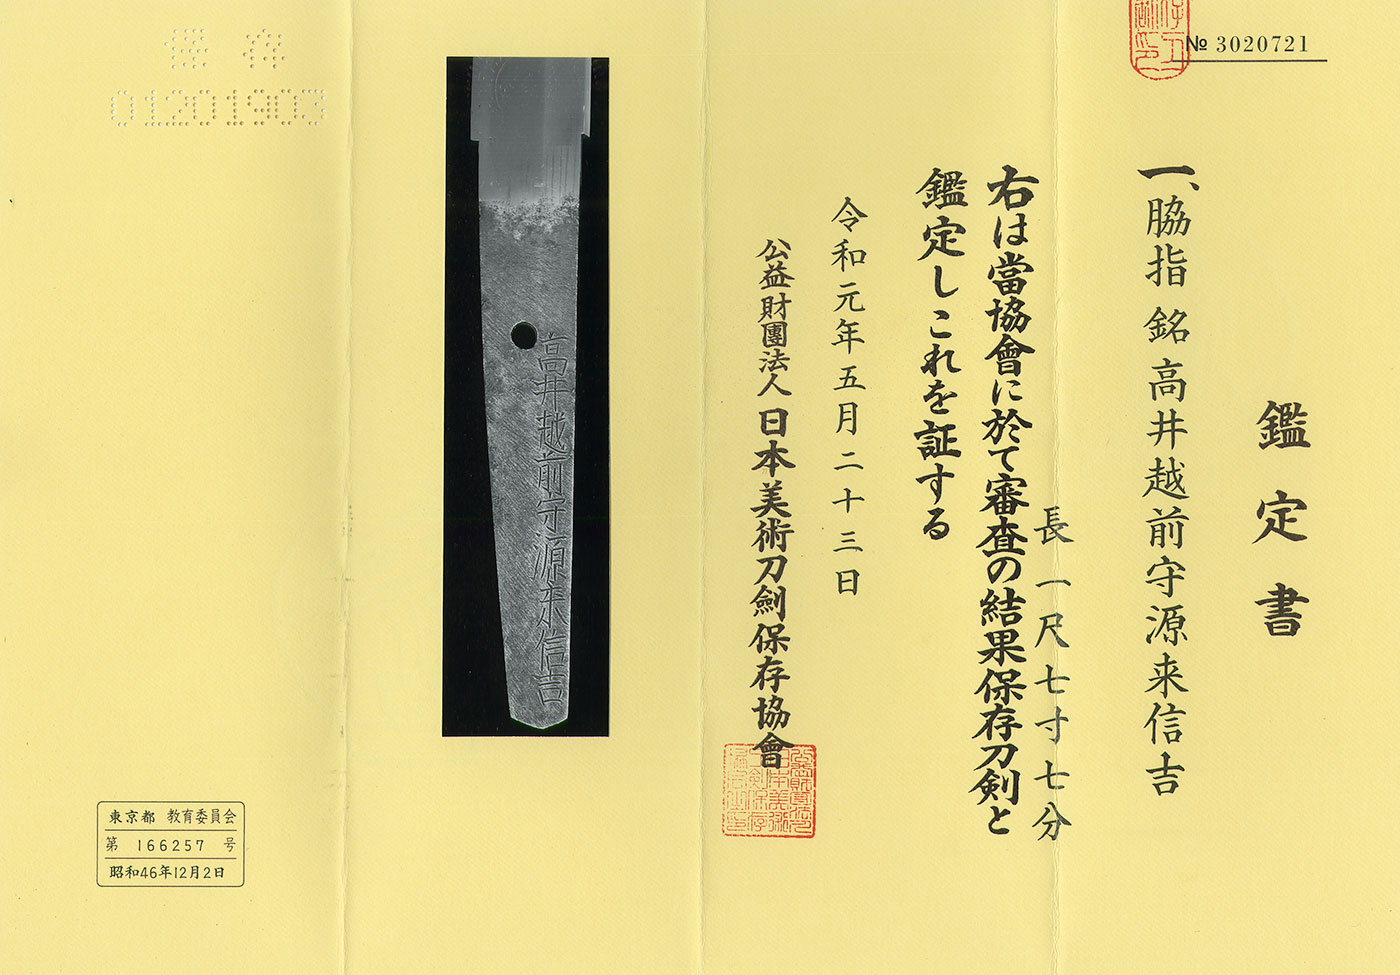 № 3020721
鑑定書
一、脇指 銘 高井越前守源来信吉
長一尺七寸七分
右は當協會に於て審査の結果保存刀剣と
鑑定しこれを証する
令和元年五月二十三日
公益財團法人 日本美術刀劍保存協會
高井越前守源来信吉
保存
01201903
東京都 教育委員会
第 166257 号
昭和46年12月2日